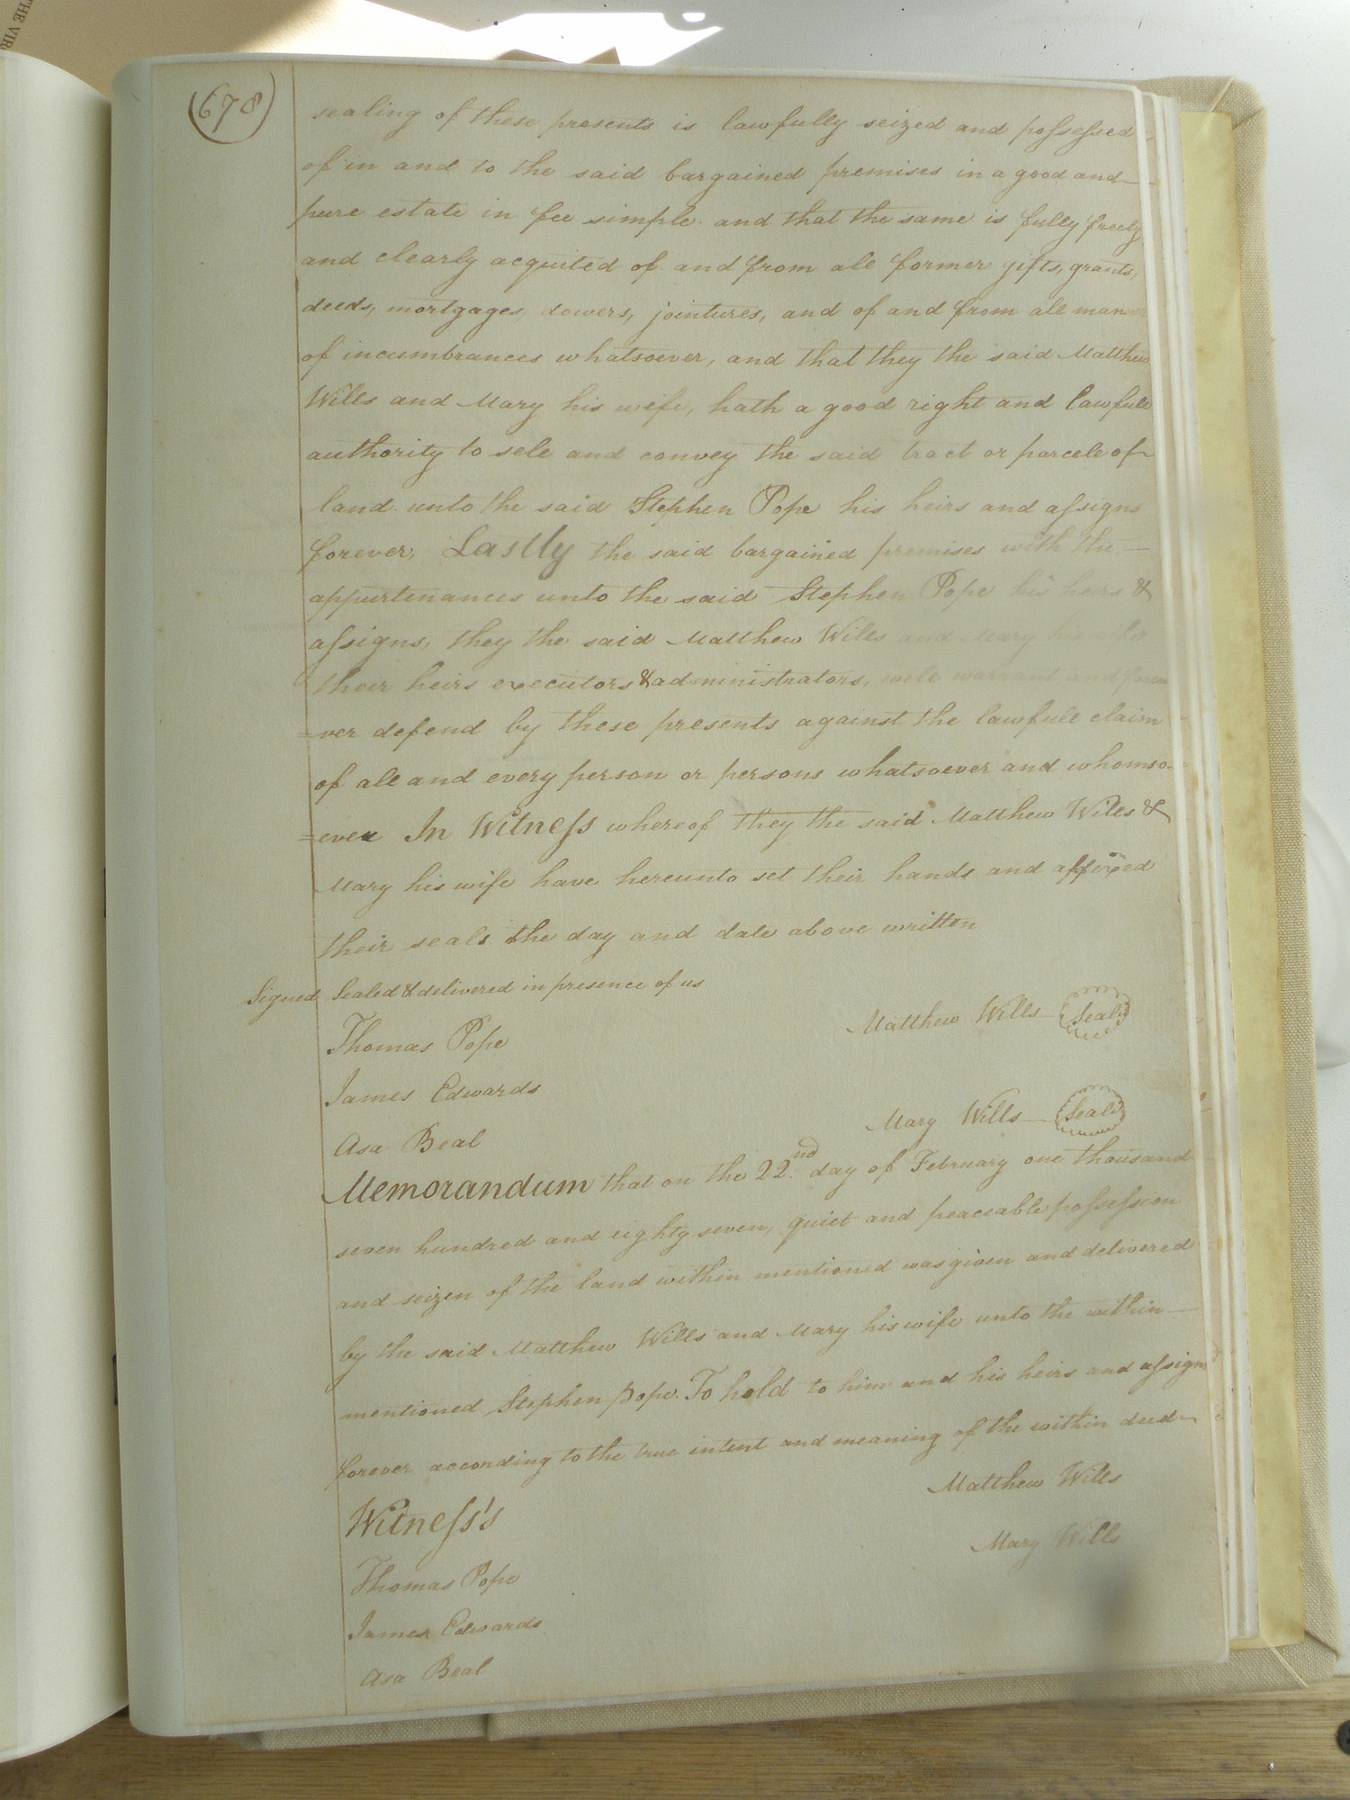 THE VIR
(678)
sealing of these presents is lawfully seized and possessed
of in and to the said bargained premises in a good and
pure estate in fee simple and that the same is fully freely
and clearly acquited of and from all former gifts, grants,
deeds, mortgages, dowers, jointures, and of and from all man
of incumbrances whatsoever, and that they the said Matthew
Wills and Mary his wife, hath a good right and lawfull
authority to sell and convey the said tract or parcell of
land unto the said Stephen Pope his heirs and assigns
forever, Lastly the said bargained premises with the
appurtenances unto the said Stephen Pope his heirs &
assigns, they the said Matthew Wills and Mary his
their heirs executors & administrators, will warrant and
=ver defend by these presents against the lawfull claim
of all and every person or persons whatsoever and whomso=
=ever In Witness whereof they the said Matthew Wills &
Mary his wife have hereunto set their hands and affixed
their seals the day and date above written
Signed Sealed & delivered in presence of us
Matthew Wills Seal
Thomas Pope
James Edwards
Mary Wills Seal
Asa Beal
Memorandum that on the 22nd day of February one thousand
seven hundred and eighty seven, quiet and peaceable possession
and seizen of the land within mentioned was given and delivered
by the said Matthew Wills and Mary his wife unto the within
mentioned Stephen Pope. To hold to him and his heirs and assigns
forever according to the true intent and meaning of the within deed
Matthew Wills
Witness's
Mary Wills
Thomas Pope
James Edwards
Asa Beal